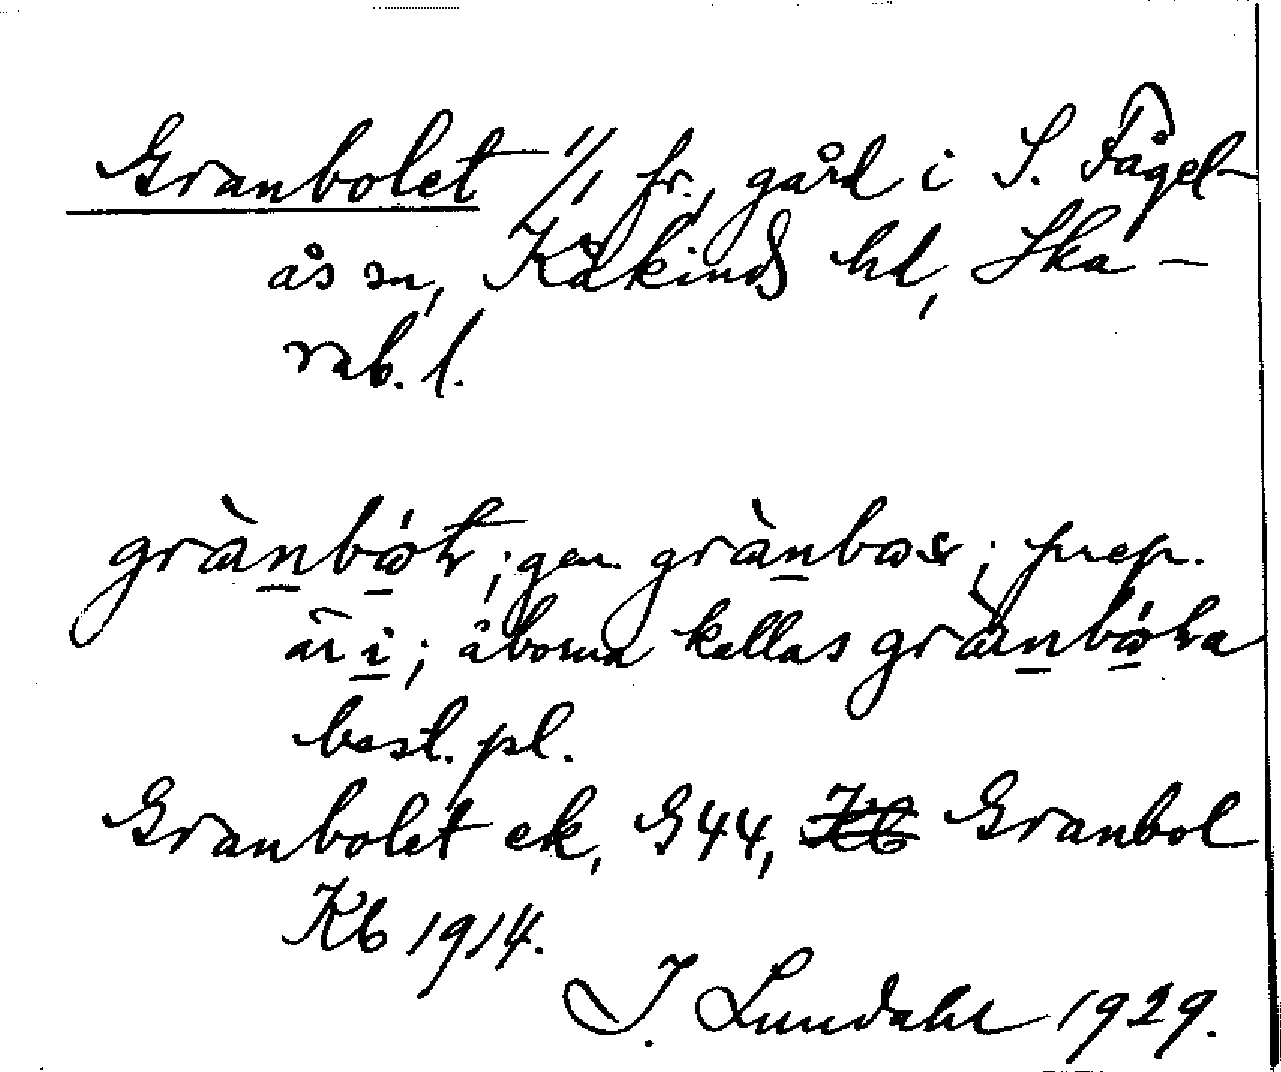 Granbolet 1/1 fr., gård i S. Fågel-
ås sn, Kåkinds hd, Ska-
rab. l.
grànbót; gen. grànbos; prep.
är i; åborna kallas grànbóta
best. pl.
Granbolet ek, G44, Granbol
Kb 1914.
J. Lundahl 1929.